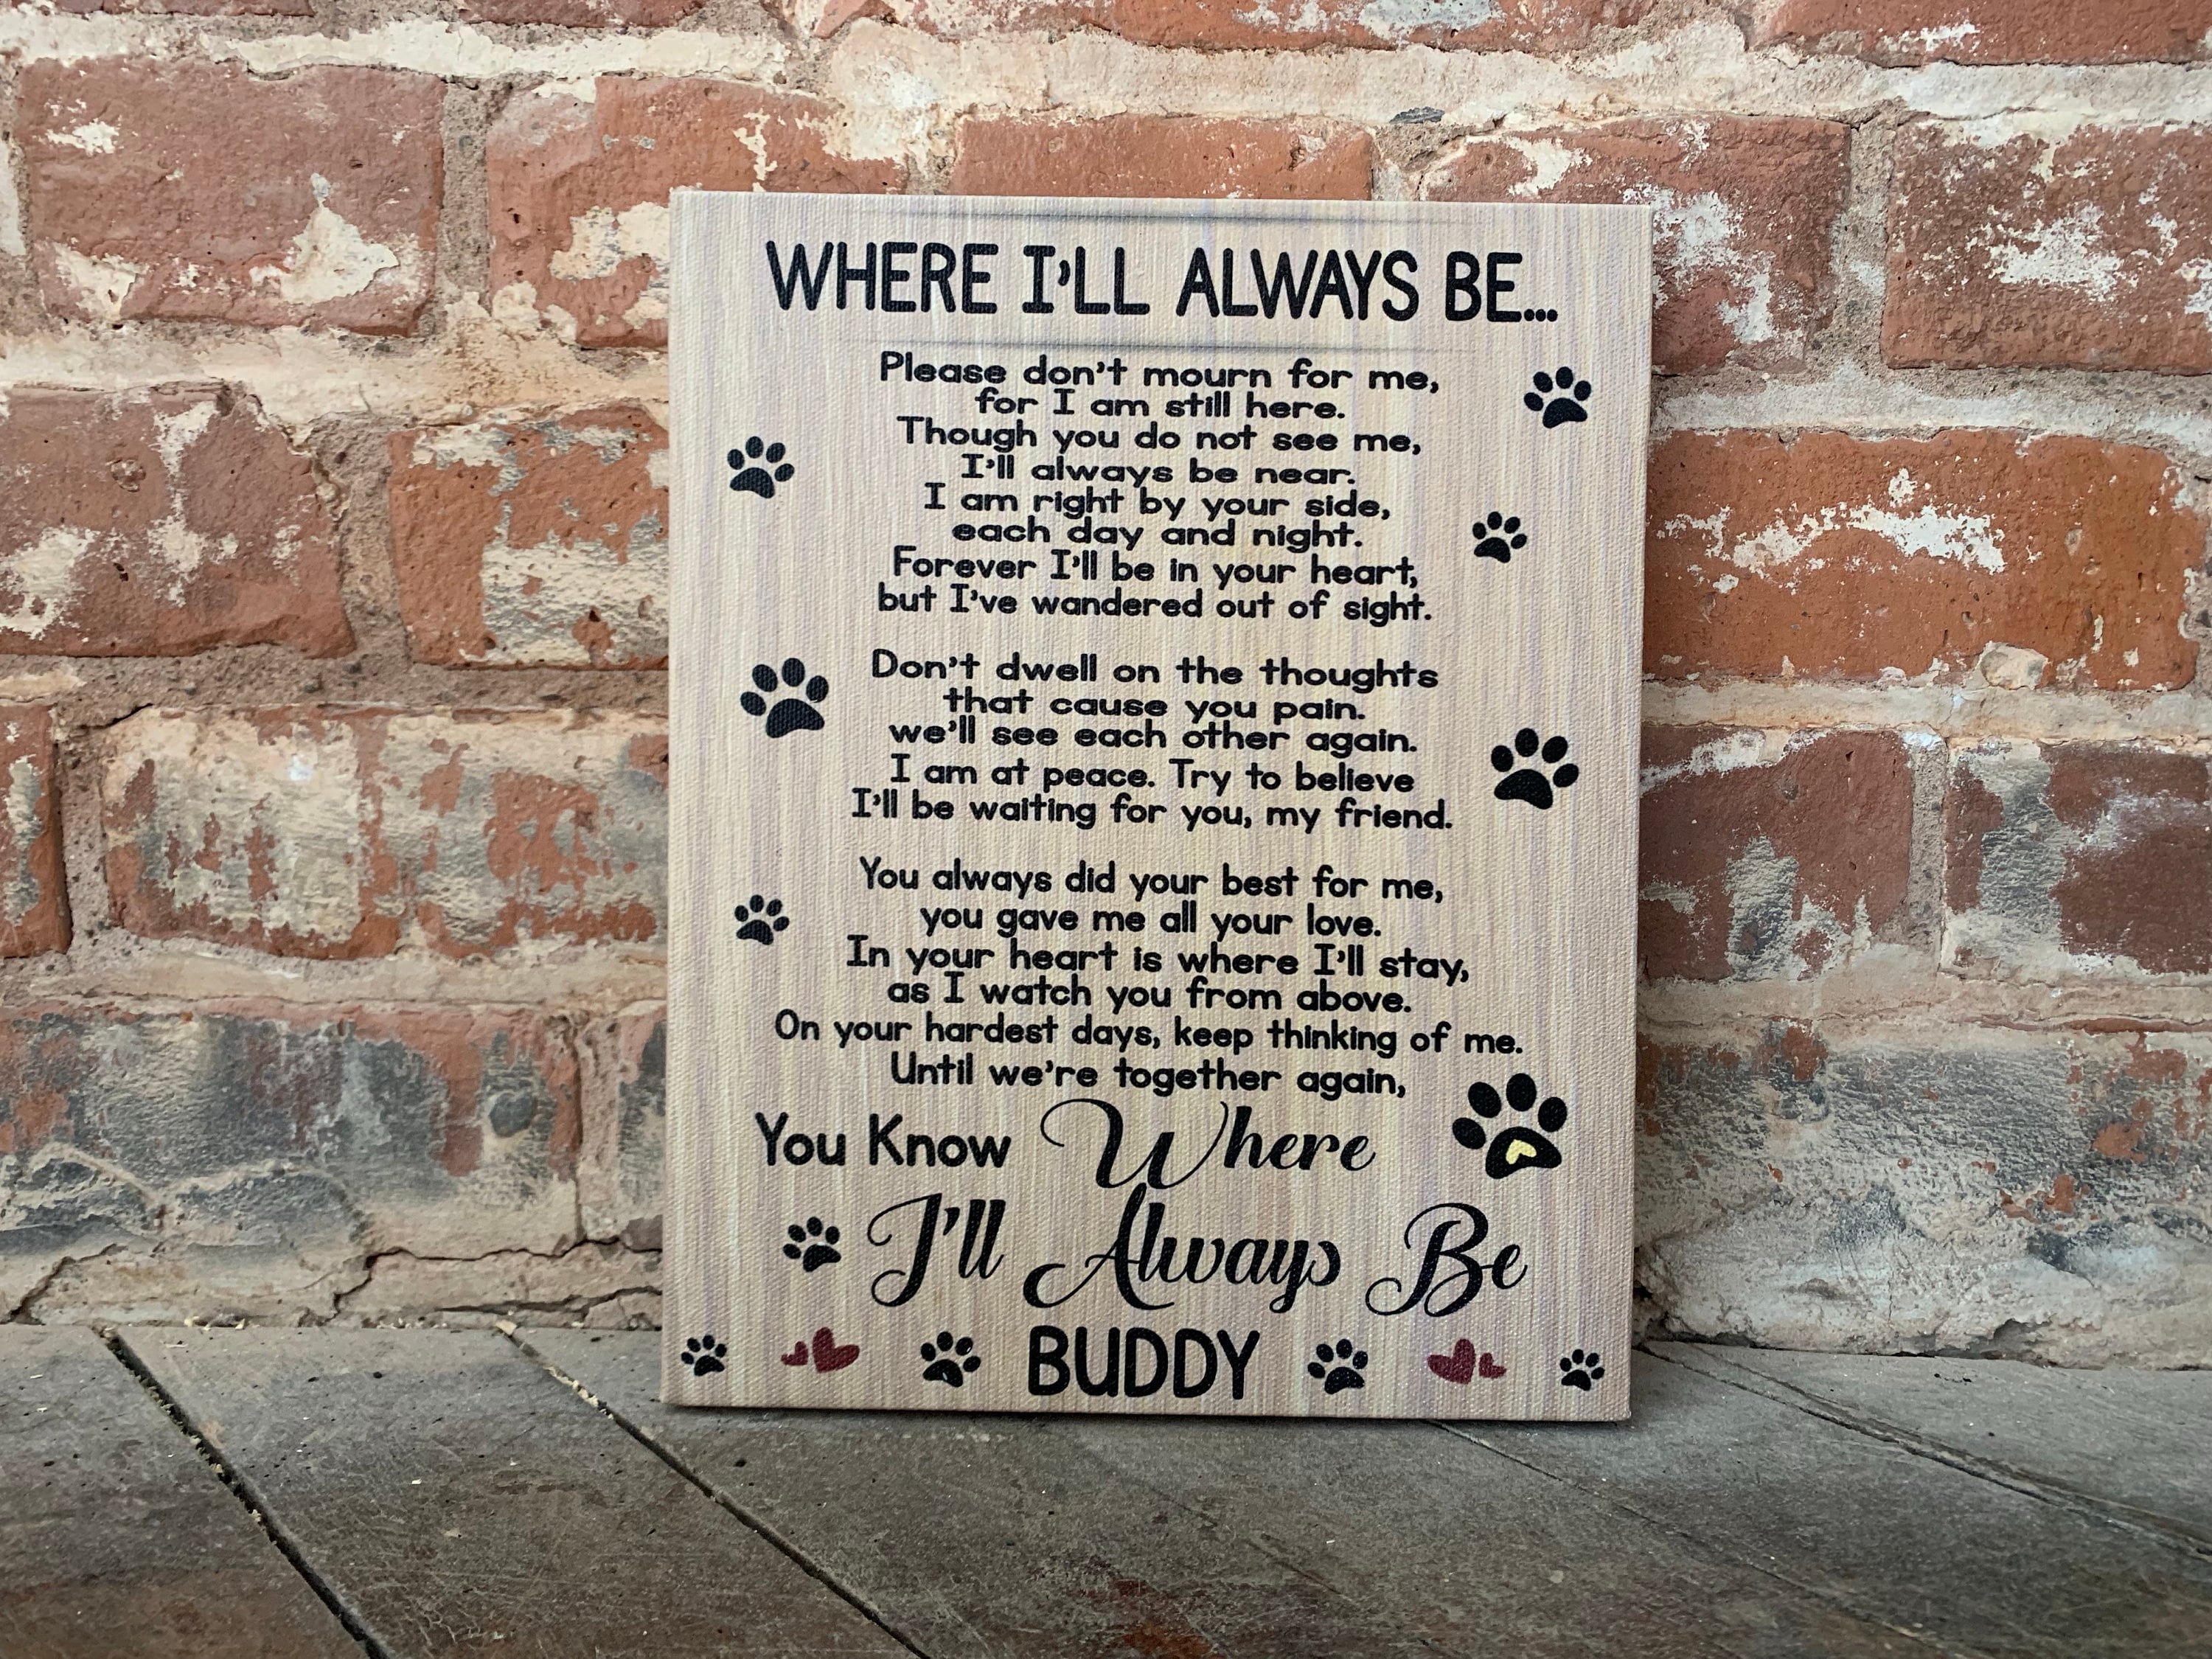 WHERE I'LL ALWAYS BE...
Please don't mourn for me,
for I am still here.
Though you do not see me,
I'll always be near.
I am right by your side,
each day and night.
Forever I'll be in your heart,
but I've wandered out of sight.
Don't dwell on the thoughts
that cause you pain.
we'll see each other again.
I am at peace. Try to believe
I'll be waiting for you, my friend.
You always did your best for me,
you gave me all your love.
In your heart is where I'll stay,
as I watch you from above.
On your hardest days, keep thinking of me.
Until we're together again,
You Know Where
I'll Always Be
BUDDY